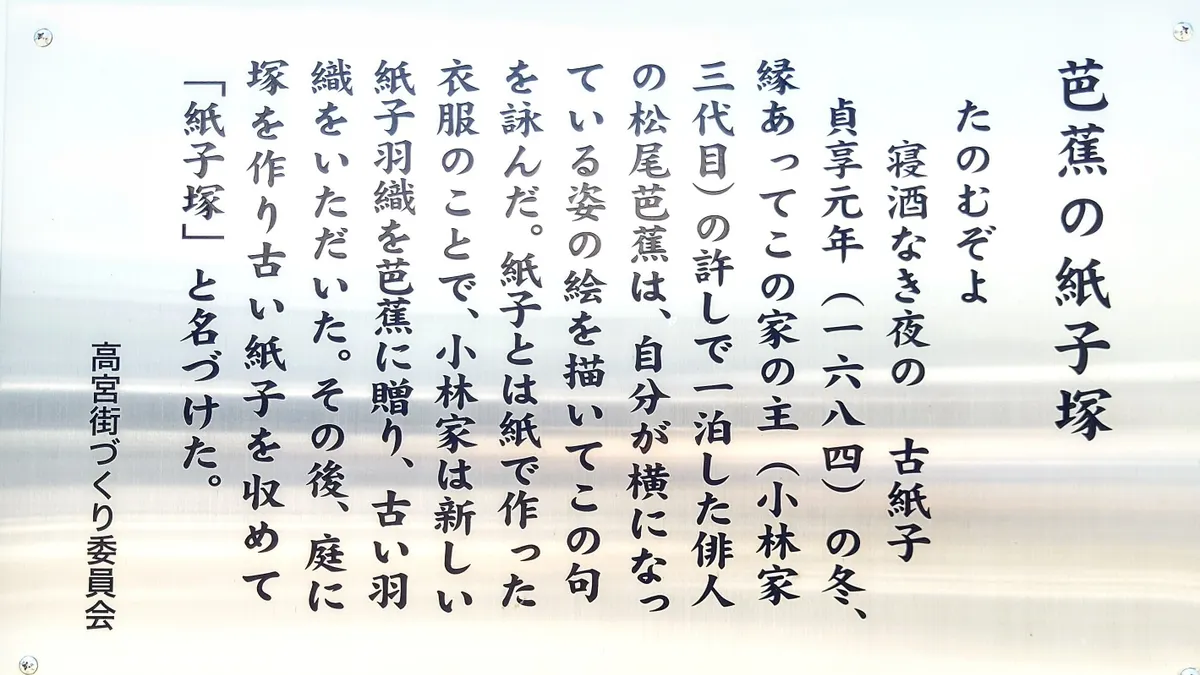 芭蕉の紙子塚
たのむぞよ
寝酒なき夜の　古紙子
貞享元年（一六八四）の冬、
縁あってこの家の主（小林家
三代目）の許しで一泊した俳人
の松尾芭蕉は、自分が横になっ
ている姿の絵を描いてこの句
を詠んだ。紙子とは紙で作った
衣服のことで、小林家は新しい
紙子羽織を芭蕉に贈り、古い羽
織をいただいた。その後、庭に
塚を作り古い紙子を収めて
「紙子塚」と名づけた。
高宮街づくり委員会